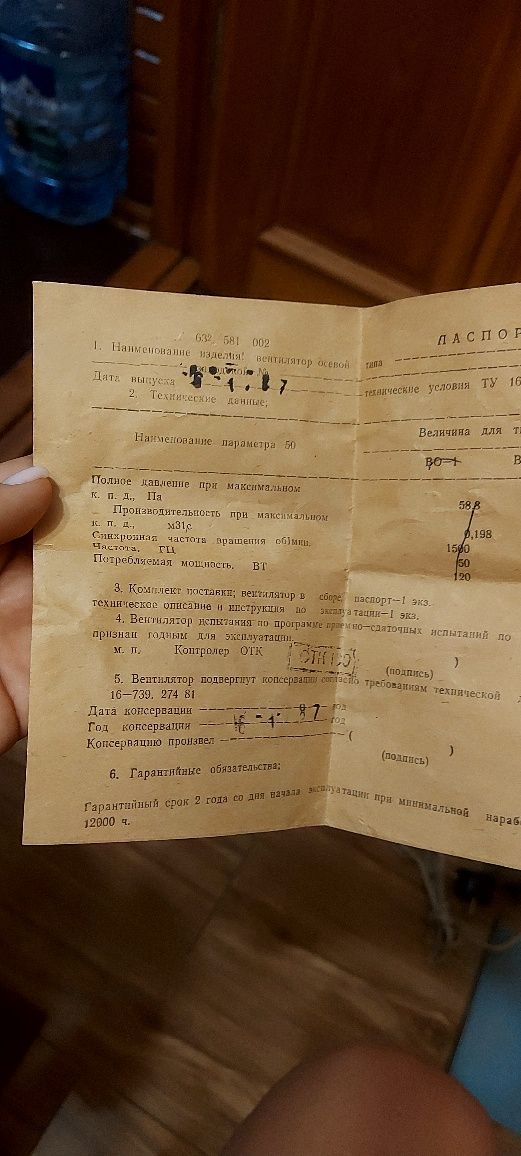 632. 581 002
ПАСПОР
1. Наименование изделия: вентилятор осевой типа
Дата выпуска 6-1.87 технические условия ТУ 16
2. Технические данные;
Наименование параметра 50 Величина для ти
ВО-1 В
Полное давление при максимальном
к. п. д., Па 58,8
Производительность при максимальном
к. п. д., м31с 0,198
Синхронная частота вращения об1мин. 1500
Частота. ГЦ 50
Потребляемая мощность, ВТ 120
3. Комплект поставки; вентилятор в сборе, паспорт—1 экз.
техническое описание и инструкция по эксплуатации—1 экз.
4. Вентилятор испытания по программе приемно—сдаточных испытаний по
признан годным для эксплуатации.
м. п. Контролер ОТК )
(подпись)
5. Вентилятор подвергнут консервации согласно требованиям технической
16—739. 274 81
Дата консервации год
Год консервации 6-1.87 год
Консервацию произвел ( )
(подпись)
6. Гарантийные обязательства;
Гарантийный срок 2 года со дня начала эксплуатации при минимальной нараб
12000 ч.